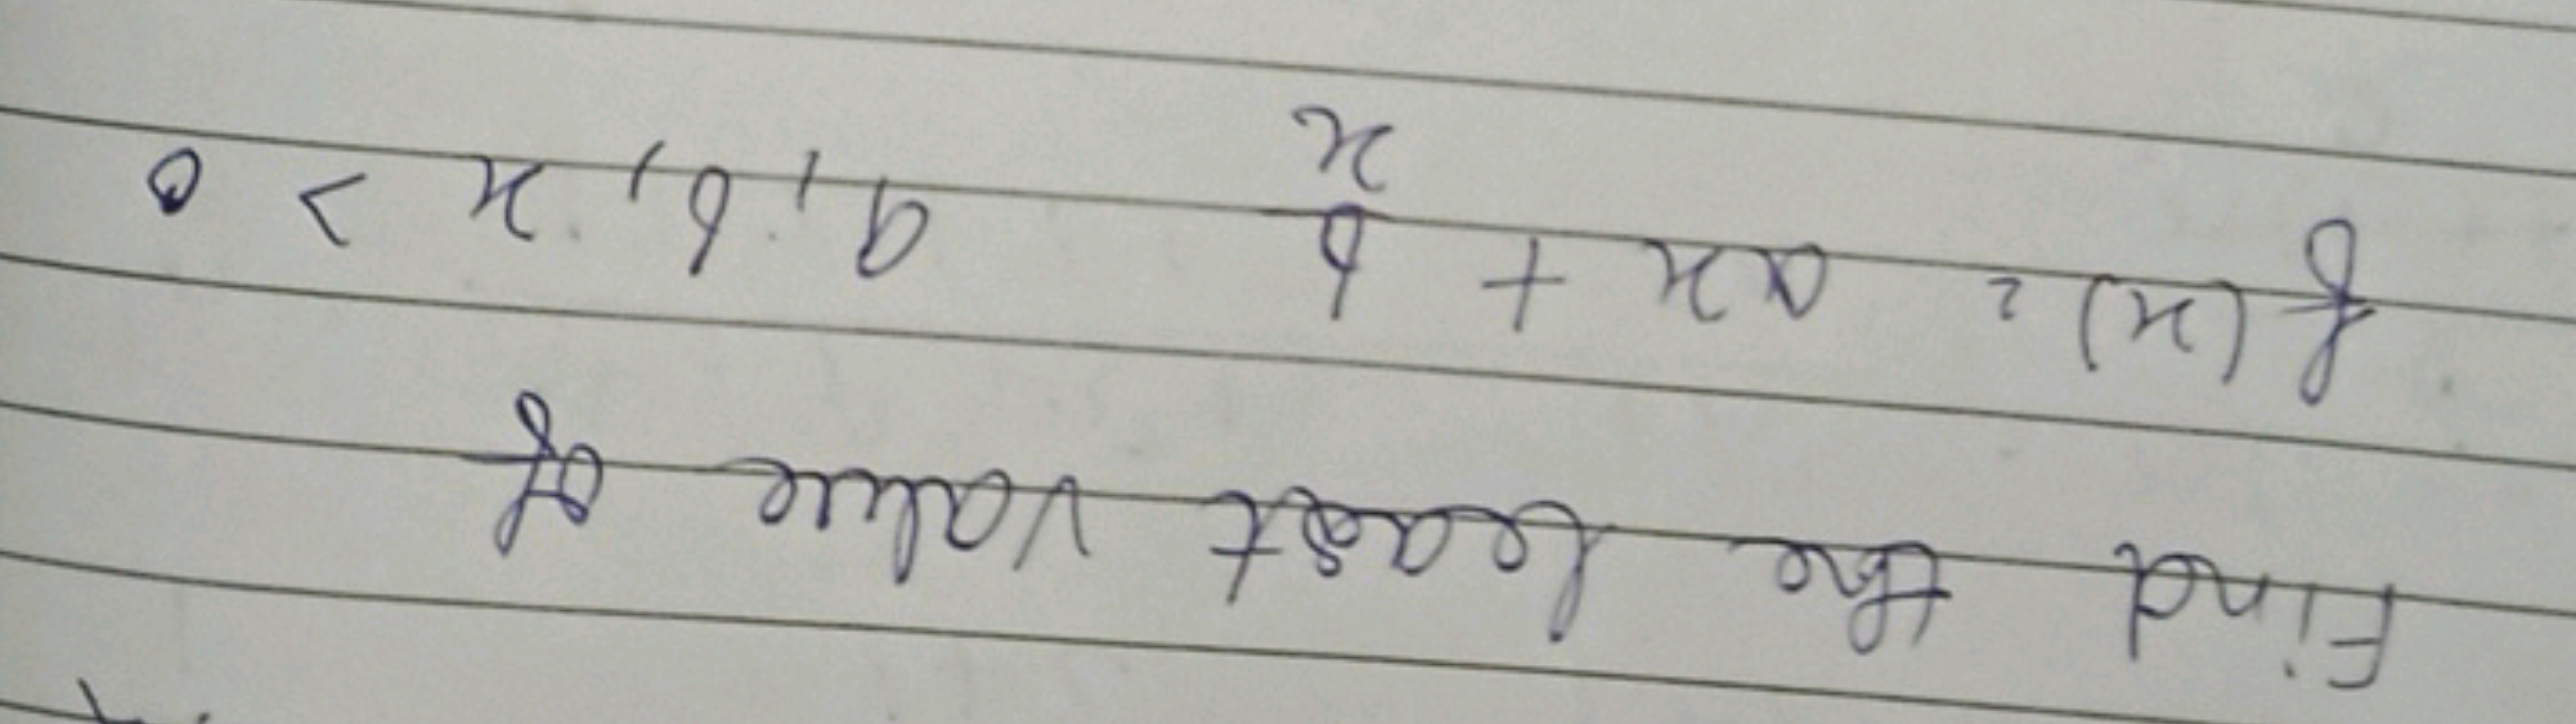 Find the least value of
f(x) = ax + b/x a, b, x > 0